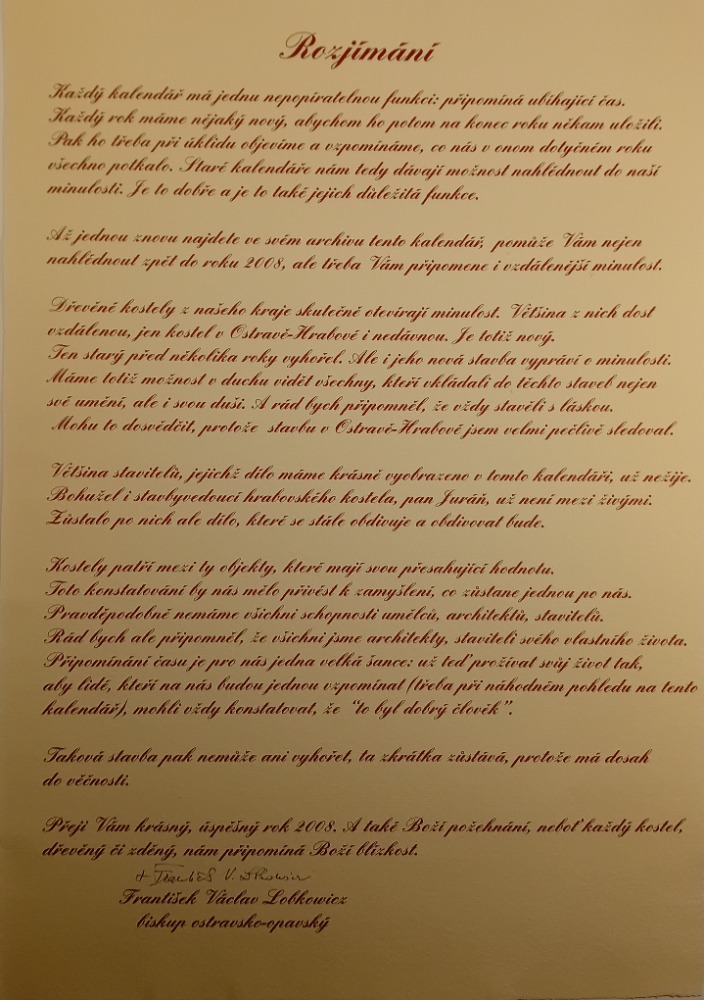 Rozjímání
Každý kalendář má jednu nepopíratelnou funkci: připomíná ubíhající čas.
Každý rok máme nějaký nový, abychom ho potom na konec roku někam uložili.
Pak ho třeba při úklidu objevíme a vzpomínáme, co nás v onom dotyčném roku
všechno potkalo. Staré kalendáře nám tedy dávají možnost nahlédnout do naší
minulosti. Je to dobře a je to také jejich důležitá funkce.
Až jednou znovu najdete ve svém archivu tento kalendář, pomůže Vám nejen
nahlédnout zpět do roku 2008, ale třeba Vám připomene i vzdálenější minulost.
Dřevěné kostely z našeho kraje skutečně otevírají minulost. Většina z nich dost
vzdálenou, jen kostel v Ostravě-Hrabové i nedávnou. Je totiž nový.
Ten starý před několika roky vyhořel. Ale i jeho nová stavba vypráví o minulosti.
Máme totiž možnost v duchu vidět všechny, kteří vkládali do těchto staveb nejen
své umění, ale i svou duši. A rád bych připomněl, že vždy stavěli s láskou.
Mohu to dosvědčit, protože stavbu v Ostravě-Hrabové jsem velmi pečlivě sledoval.
Většina stavitelů, jejichž dílo máme krásně vyobrazeno v tomto kalendáři, už nežije.
Bohužel i stavbyvedoucí hrabovského kostela, pan Juráň, už není mezi živými.
Zůstalo po nich ale dílo, které se stále obdivuje a obdivovat bude.
Kostely patří mezi ty objekty, které mají svou přesahující hodnotu.
Toto konstatování by nás mělo přivést k zamyšlení, co zůstane jednou po nás.
Pravděpodobně nemáme všichni schopnosti umělců, architektů, stavitelů.
Rád bych ale připomněl, že všichni jsme architekty, staviteli svého vlastního života.
Připomínání času je pro nás jedna velká šance: už teď prožívat svůj život tak,
aby lidé, kteří na nás budou jednou vzpomínat (třeba při náhodném pohledu na tento
kalendář), mohli vždy konstatovat, že "to byl dobrý člověk".
Taková stavba pak nemůže ani vyhořet, ta zkrátka zůstává, protože má dosah
do věčnosti.
Přeji Vám krásný, úspěšný rok 2008. A také Boží požehnání, neboť každý kostel,
dřevěný či zděný, nám připomíná Boží blízkost.
František Václav Lobkowicz
biskup ostravsko-opavský